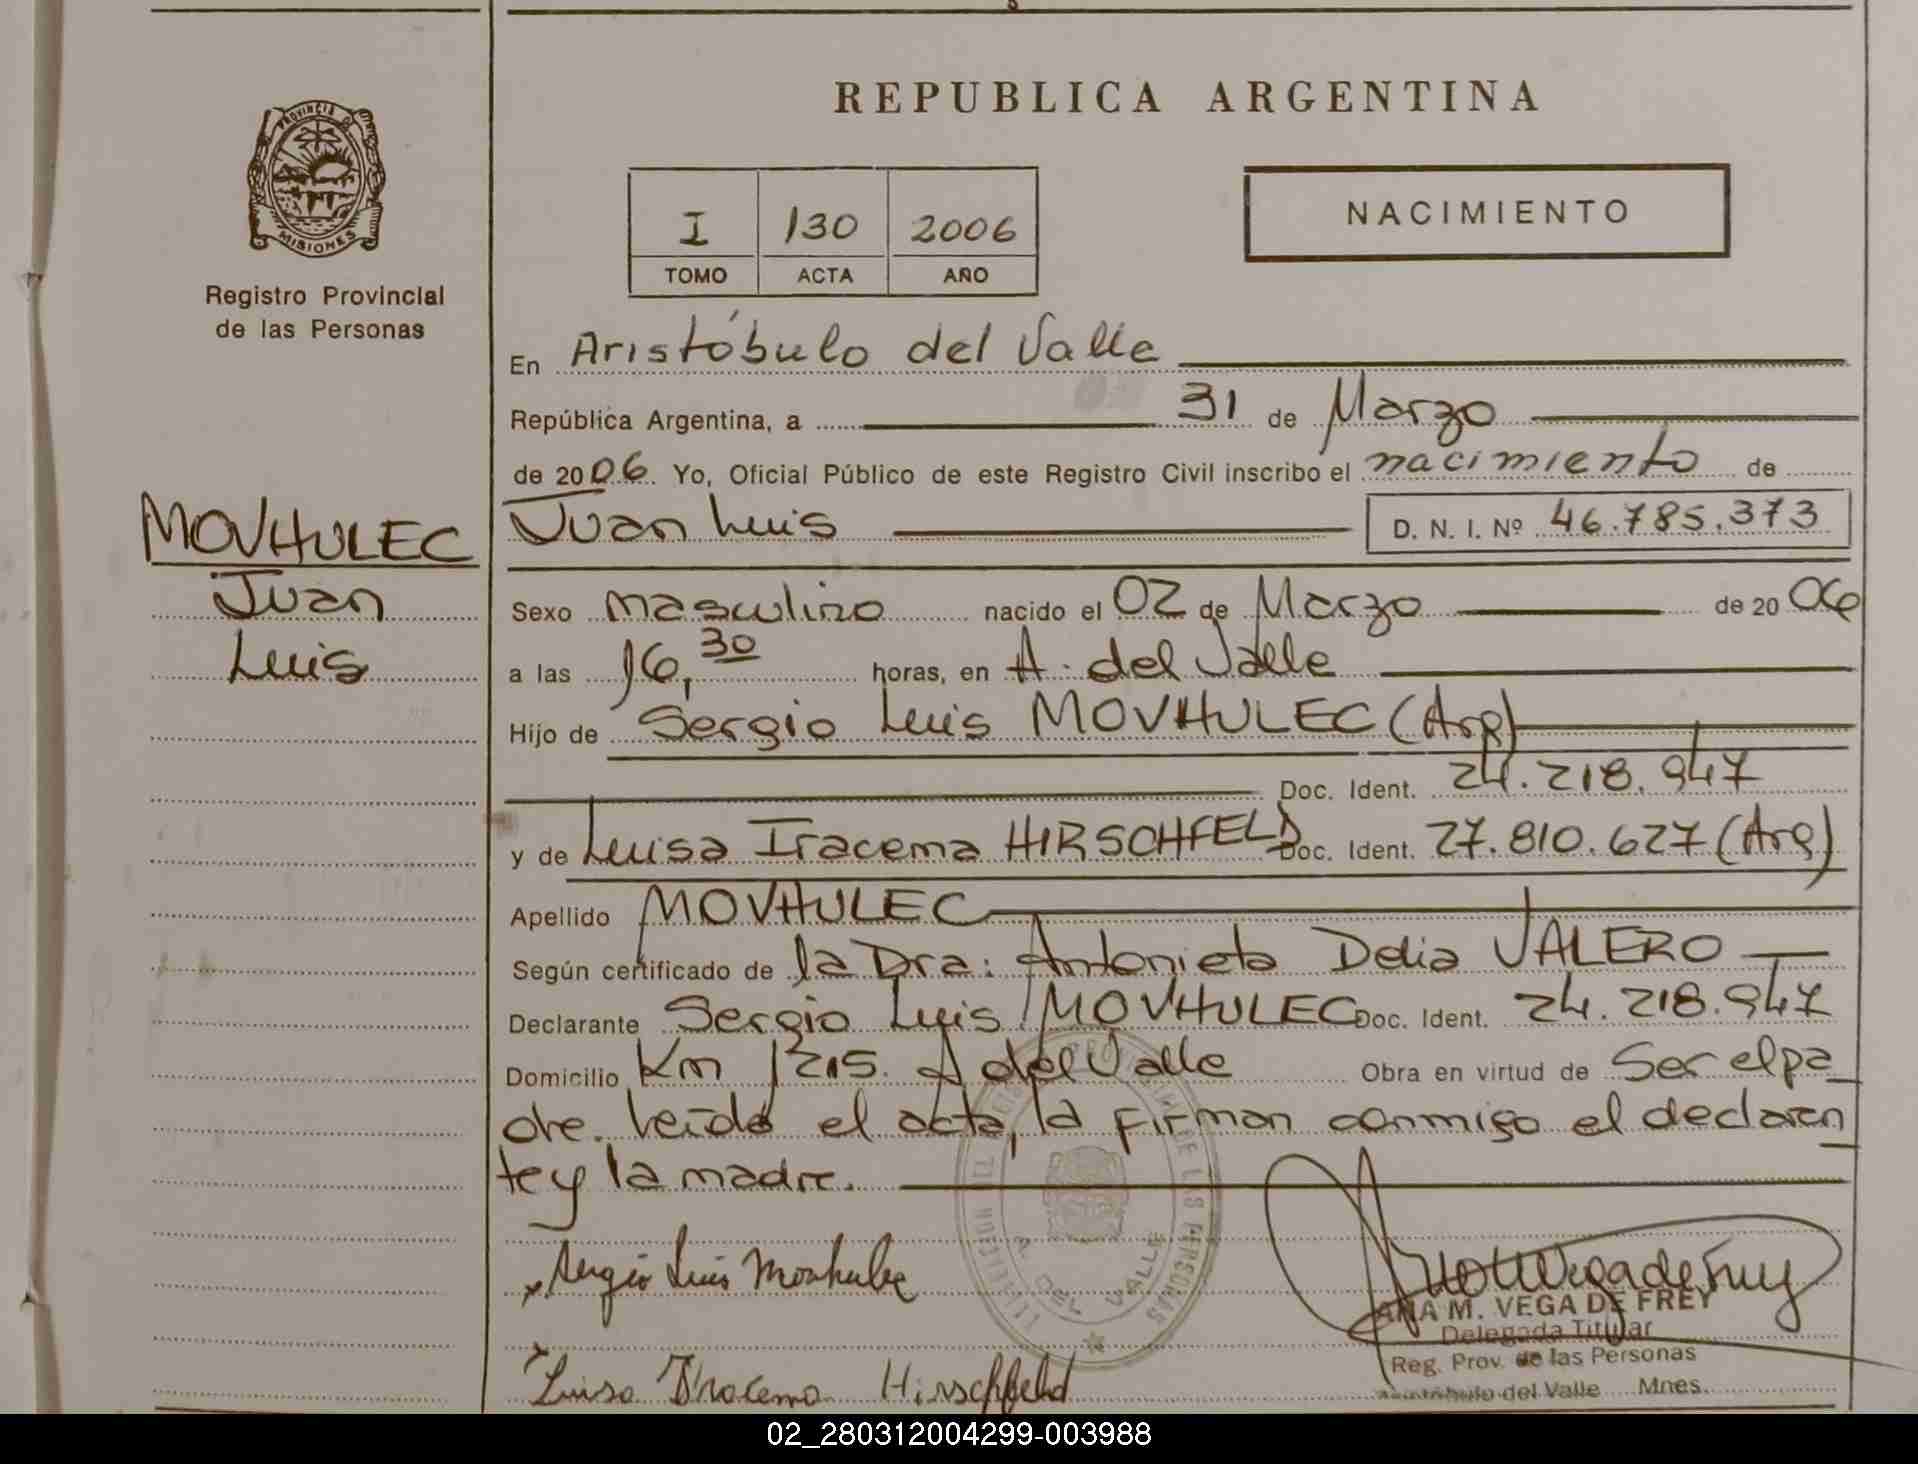 REPUBLICA ARGENTINA
PROVINCIA DE
MISIONES
Registro Provincial
de las Personas
I 130 2006
TOMO ACTA AÑO
NACIMIENTO
En Aristóbulo del Valle
República Argentina, a 31 de Marzo
de 2006. Yo, Oficial Público de este Registro Civil inscribo el nacimiento de
MOVHULEC
Juan
Luis
Juan Luis D. N. I. Nº 46.785.373
Sexo masculino nacido el 02 de Marzo de 2006
a las 16,30 horas, en A. del Valle
Hijo de Sergio Luis MOVHULEC (Arg)
Doc. Ident. 24.218.947
y de Luisa Iracema HIRSCHFELD Doc. Ident. 27.810.627 (Arg)
Apellido MOVHULEC
Según certificado de la Dra: Antonieta Delia VALERO
Declarante Sergio Luis MOVHULEC Doc. Ident. 24.218.947
Domicilio Km 1215. A del Valle Obra en virtud de Ser el pa
dre. Leída el acta, la firman conmigo el declaran
te y la madre.
Sergio Luis Movhulec
Luisa Iracema Hirschfeld
A. DEL VALLE
DE LAS PERSONAS
ANA M. VEGA DE FREY
Delegada Titular
Reg. Prov. de las Personas
Aristóbulo del Valle Mnes.
02_280312004299-003988